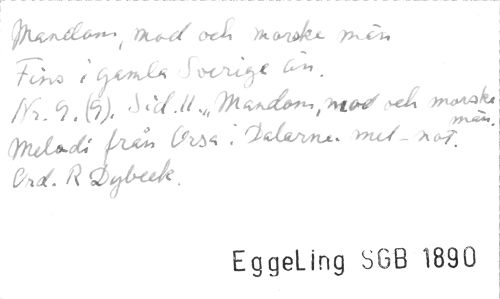 Mandom, mod och morske män
Fins i gamla Sverige än.
Nr. 9. (9). Sid. 11. „Mandom, mod och morske
män.
Melodi från Orsa i Dalarne. mel-not.
Ord. R Dybeck.
EggeLing SGB 1890